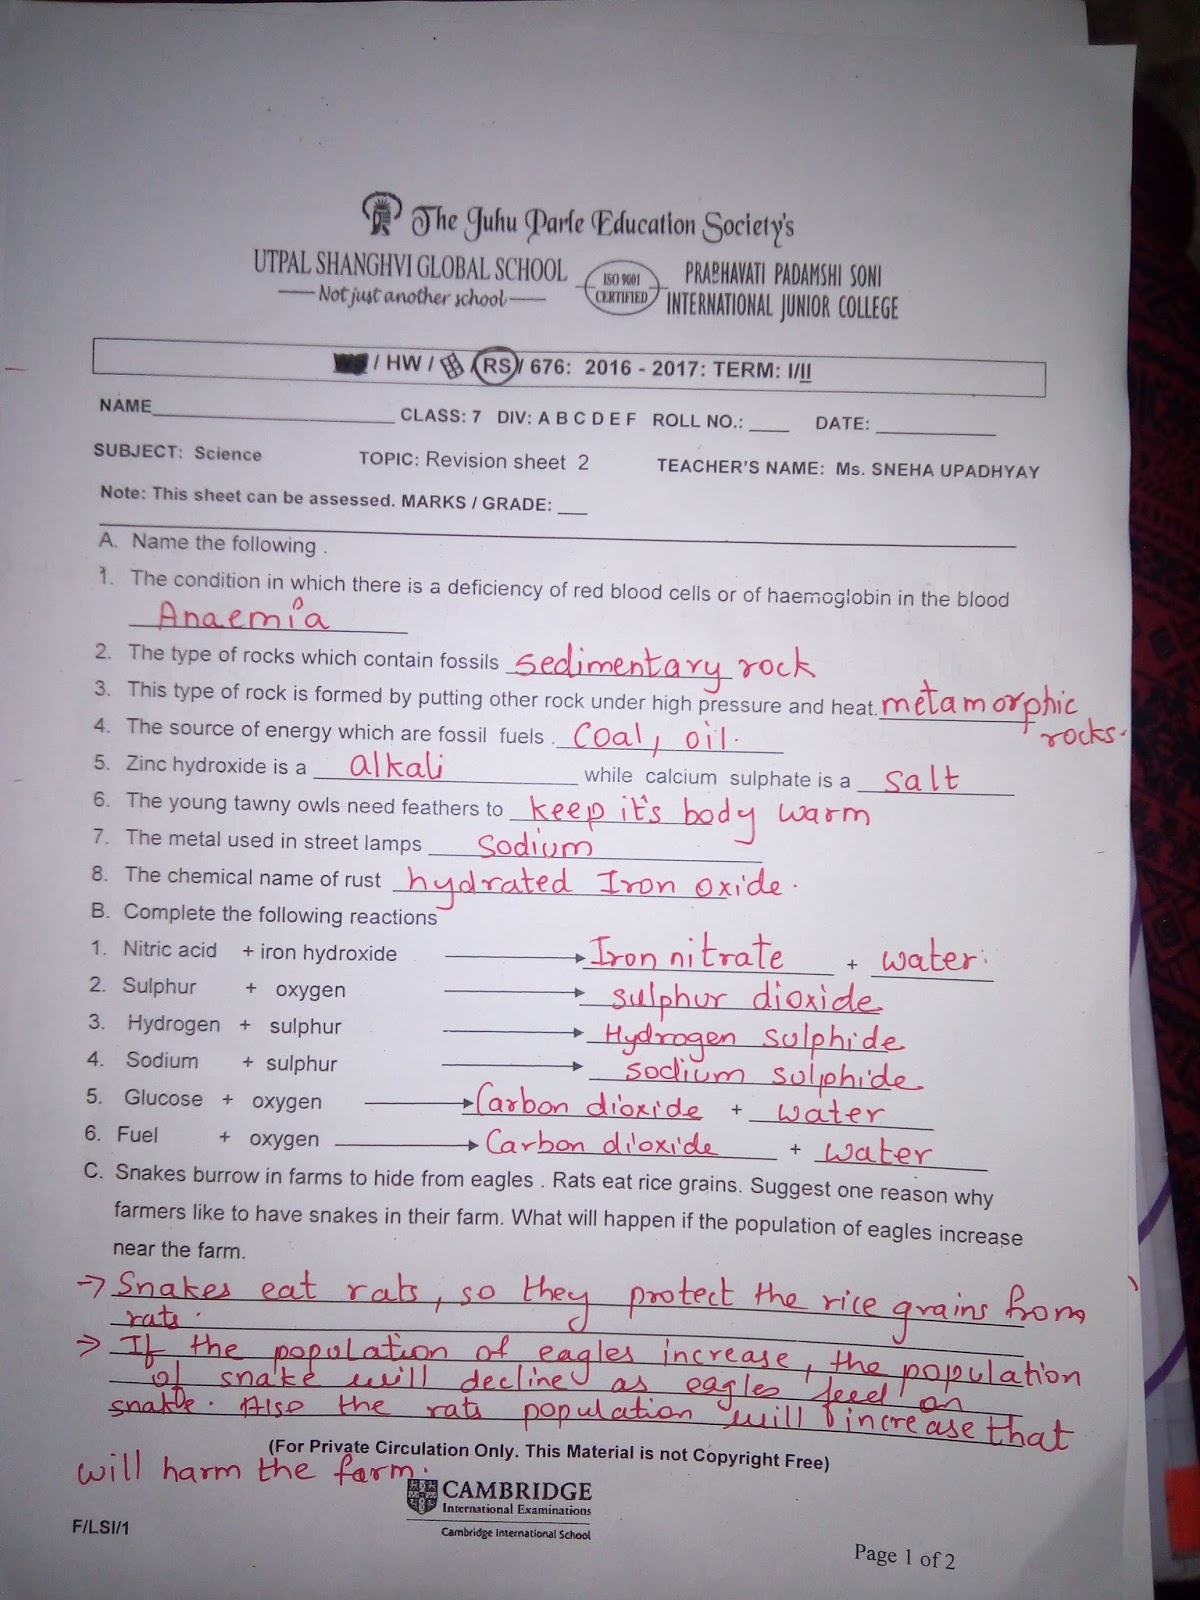 The Juhu Parle Education Society's
UTPAL SHANGHVI GLOBAL SCHOOL
Not just another school
ISO 9001
CERTIFIED
PRABHAVATI PADAMSHI SONI
INTERNATIONAL JUNIOR COLLEGE
/ HW / / RS / 676: 2016 - 2017: TERM: I/II
NAME____________ CLASS: 7 DIV: A B C D E F ROLL NO.: ____ DATE: ____________
SUBJECT: Science TOPIC: Revision sheet 2 TEACHER'S NAME: Ms. SNEHA UPADHYAY
Note: This sheet can be assessed. MARKS / GRADE: ___
A. Name the following .
1. The condition in which there is a deficiency of red blood cells or of haemoglobin in the blood
Anaemia
2. The type of rocks which contain fossils sedimentary rock
3. This type of rock is formed by putting other rock under high pressure and heat. metamorphic
rocks.
4. The source of energy which are fossil fuels . coal, oil.
5. Zinc hydroxide is a alkali while calcium sulphate is a salt
6. The young tawny owls need feathers to keep it's body warm
7. The metal used in street lamps sodium
8. The chemical name of rust hydrated Iron oxide.
B. Complete the following reactions
1. Nitric acid + iron hydroxide → Iron nitrate + water.
2. Sulphur + oxygen → sulphur dioxide
3. Hydrogen + sulphur → Hydrogen sulphide
4. Sodium + sulphur → sodium sulphide
5. Glucose + oxygen → Carbon dioxide + water
6. Fuel + oxygen → Carbon dioxide + water
C. Snakes burrow in farms to hide from eagles . Rats eat rice grains. Suggest one reason why
farmers like to have snakes in their farm. What will happen if the population of eagles increase
near the farm.
→ Snakes eat rats, so they protect the rice grains from
rats.
→ If the population of eagles increase, the population
of snake will decline as eagles feed on
snake. Also the rats population will increase that
(For Private Circulation Only. This Material is not Copyright Free)
will harm the farm.
CAMBRIDGE
International Examinations
Cambridge International School
F/LSI/1
Page 1 of 2